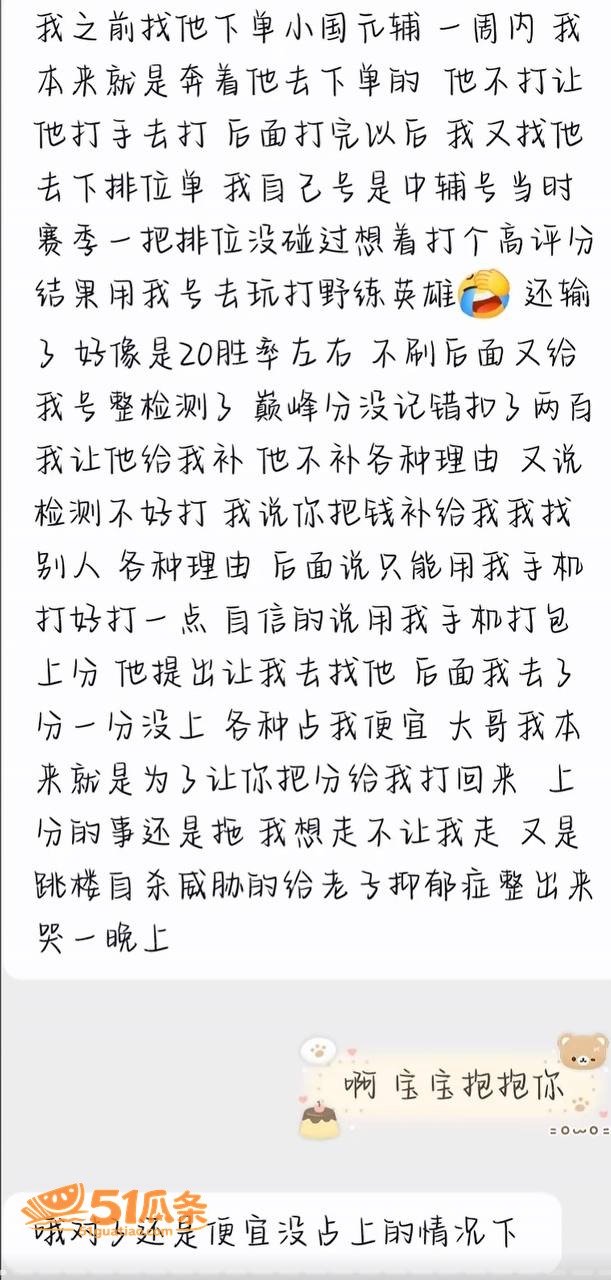 我之前找他下单小国元辅 一周内 我
本来就是奔着他去下单的 他不打让
他打手去打 后面打完以后 我又找他
去下排位单 我自己号是中辅号当时
赛季一把排位没碰过想着打个高评分
结果用我号去玩打野练英雄🤣 还输
了 好像是20胜率左右 不刷后面又给
我号整检测了 巅峰分没记错扣了两百
我让他给我补 他不补各种理由 又说
检测不好打 我说你把钱补给我我找
别人 各种理由 后面说只能用我手机
打好打一点 自信的说用我手机打包
上分 他提出让我去找他 后面我去了
分一分没上 各种占我便宜 大哥我本
来就是为了让你把分给我打回来 上
分的事还是拖 我想走不让我走 又是
跳楼自杀威胁的给老子抑郁症整出来
哭一晚上
啊 宝宝抱抱你
=ㅇωㅇ=
51瓜条
51guatiao.com
哦对了还是便宜没占上的情况下